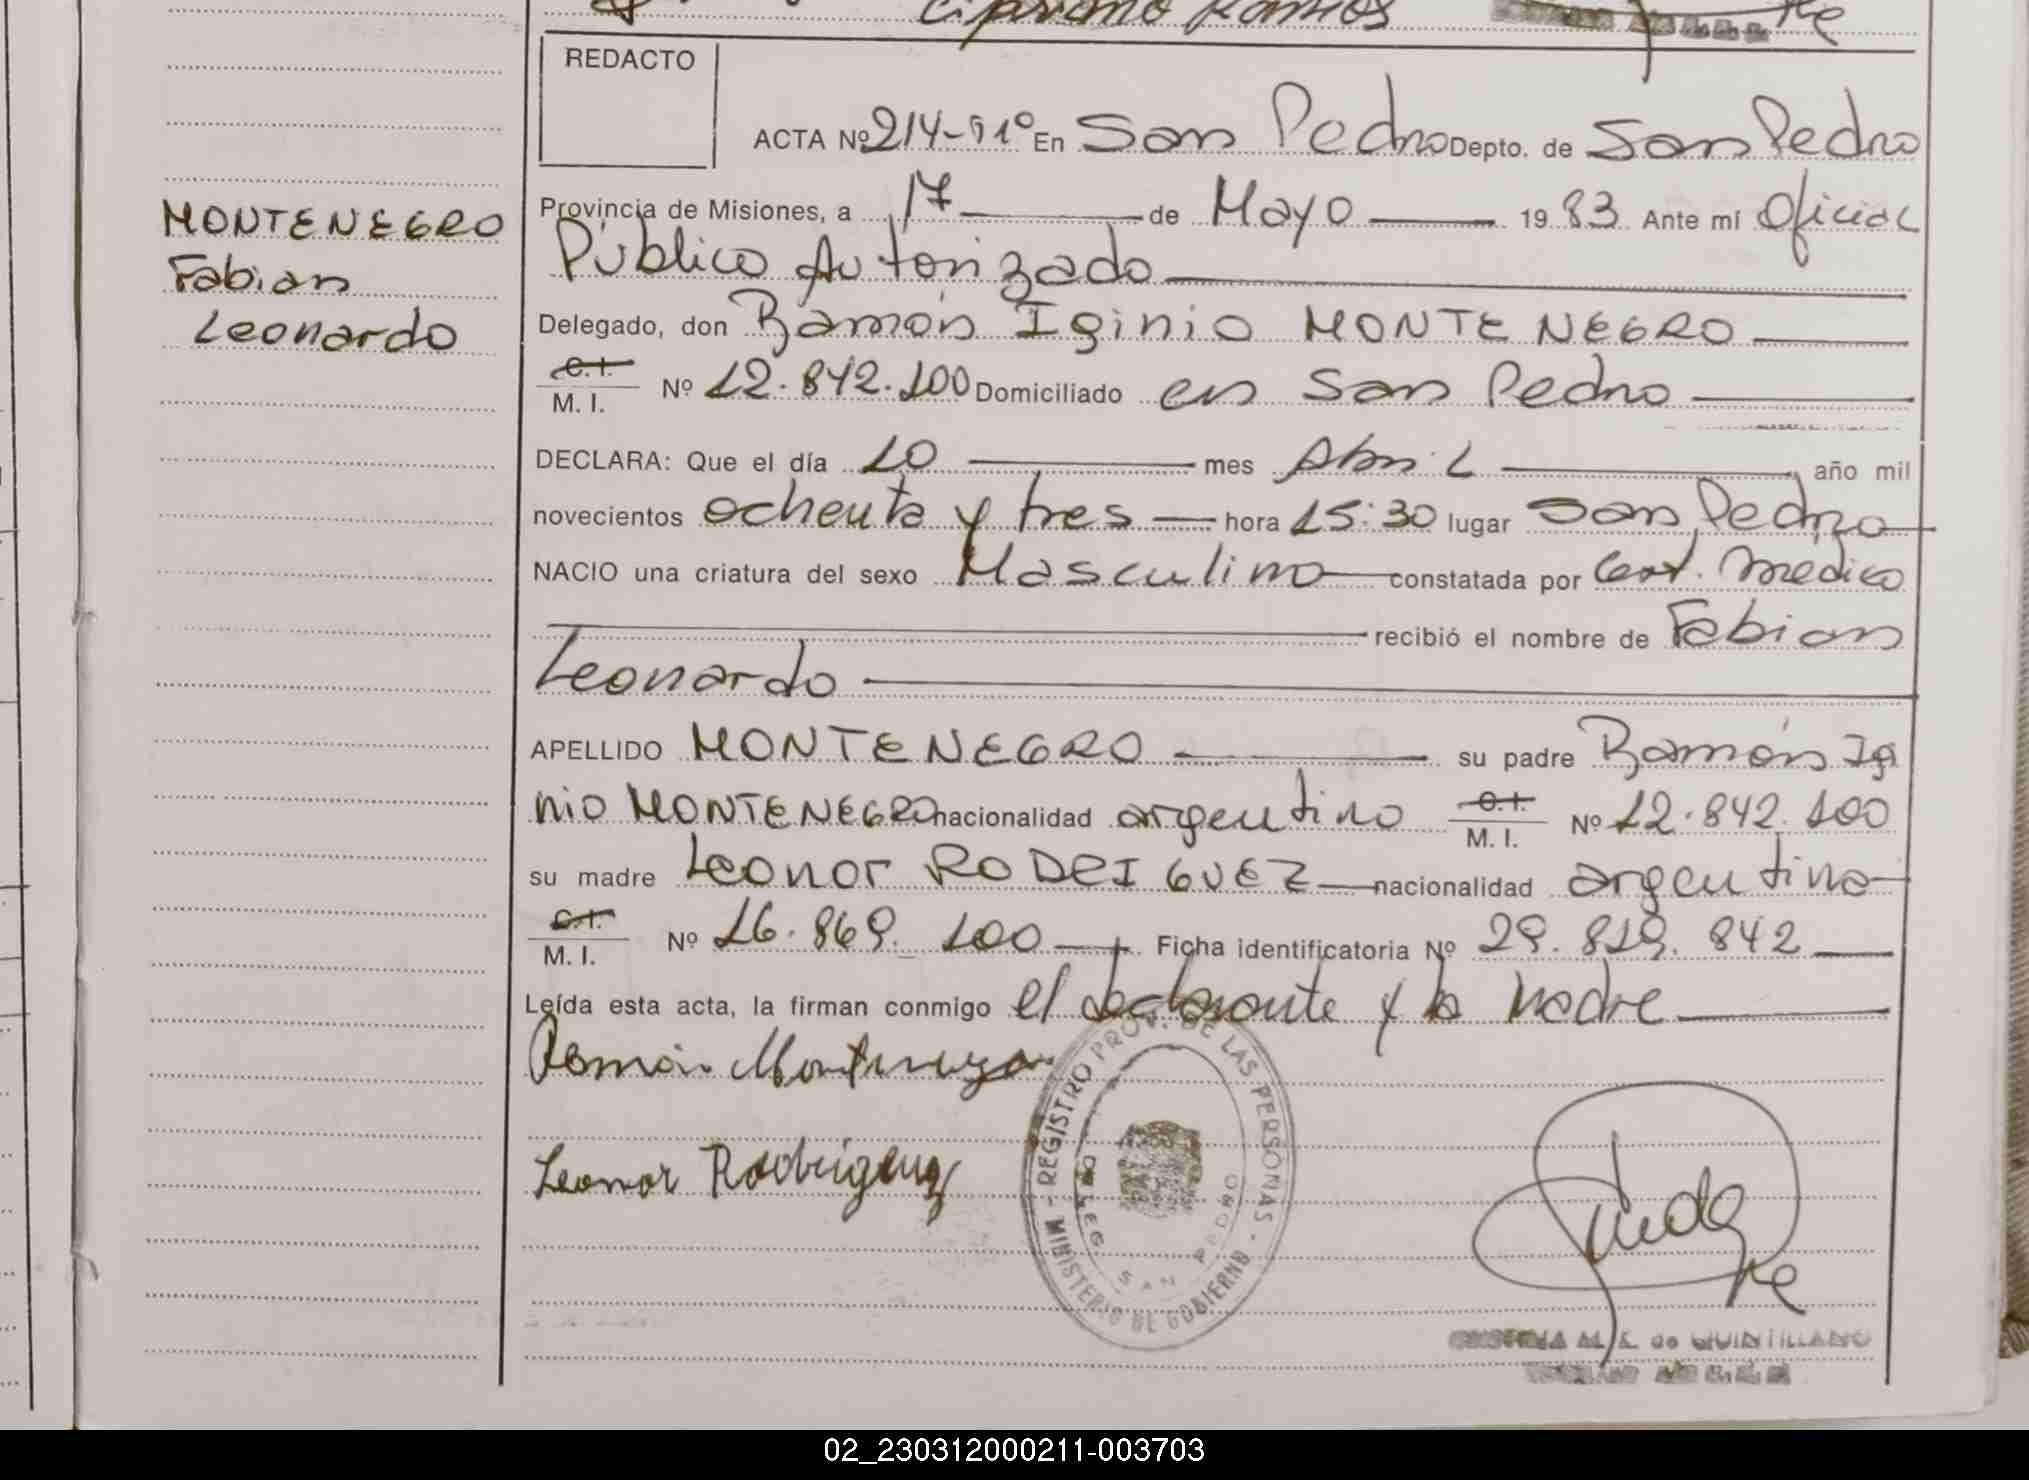 Cipriano Ramos
REDACTO
ACTA Nº 214-T1º En San Pedro Depto. de San Pedro
MONTENEGRO
Fabian
Leonardo
Provincia de Misiones, a 17 de Mayo 1983 Ante mí Oficial
Público Autorizado
Delegado, don Ramón Iginio MONTENEGRO
C.I. M. I. Nº 12.842.100 Domiciliado en San Pedro
DECLARA: Que el día 10 mes Abril año mil
novecientos ochenta y tres hora 15:30 lugar San Pedro
NACIO una criatura del sexo Masculino constatada por Cert. médico
recibió el nombre de Fabian
Leonardo
APELLIDO MONTENEGRO su padre Ramón Igi
nio MONTENEGRO nacionalidad argentino C.I. M. I. Nº 12.842.100
su madre Leonor RODRIGUEZ nacionalidad argentina
C.I. M. I. Nº 16.869.100 Ficha identificatoria Nº 29.819.842
Leída esta acta, la firman conmigo el declarante y la madre
Ramón Montenegro
Leonor Rodriguez
REGISTRO PROV. DE LAS PERSONAS - MINISTERIO DE GOBIERNO -
DELEG. SAN PEDRO
CRISTINA M. E. de QUINTILLANO
02_230312000211-003703